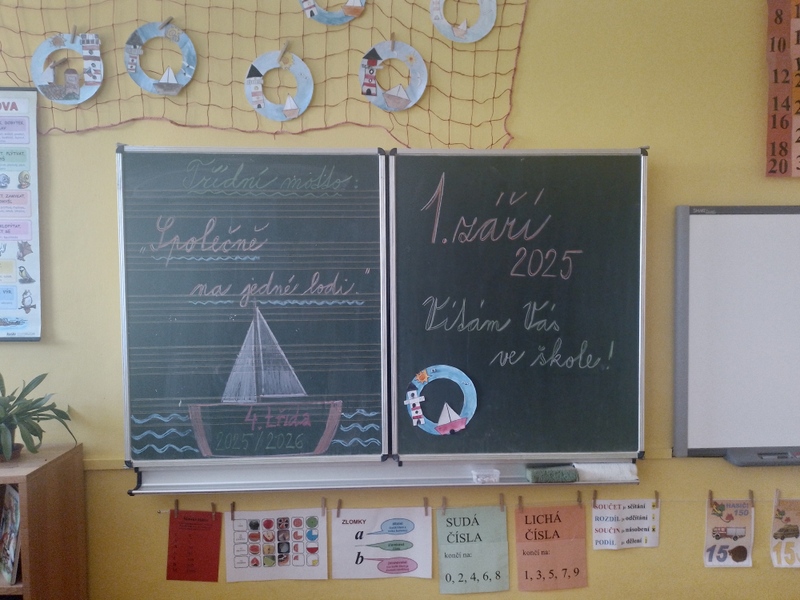 Třídní motto:
„Společně
na jedné lodi."
4. třída
2025/2026
1. září
2025
Vítám Vás
ve škole!
OVA
8
10
12
14
16
18
20
ZLOMKY
a
b
SUDÁ
ČÍSLA
končí na:
0, 2, 4, 6, 8
LICHÁ
ČÍSLA
končí na:
1, 3, 5, 7, 9
SOUČET
sčítání
ROZDÍL
odčítání
SOUČIN
násobení
PODÍL
dělení
150
15
15